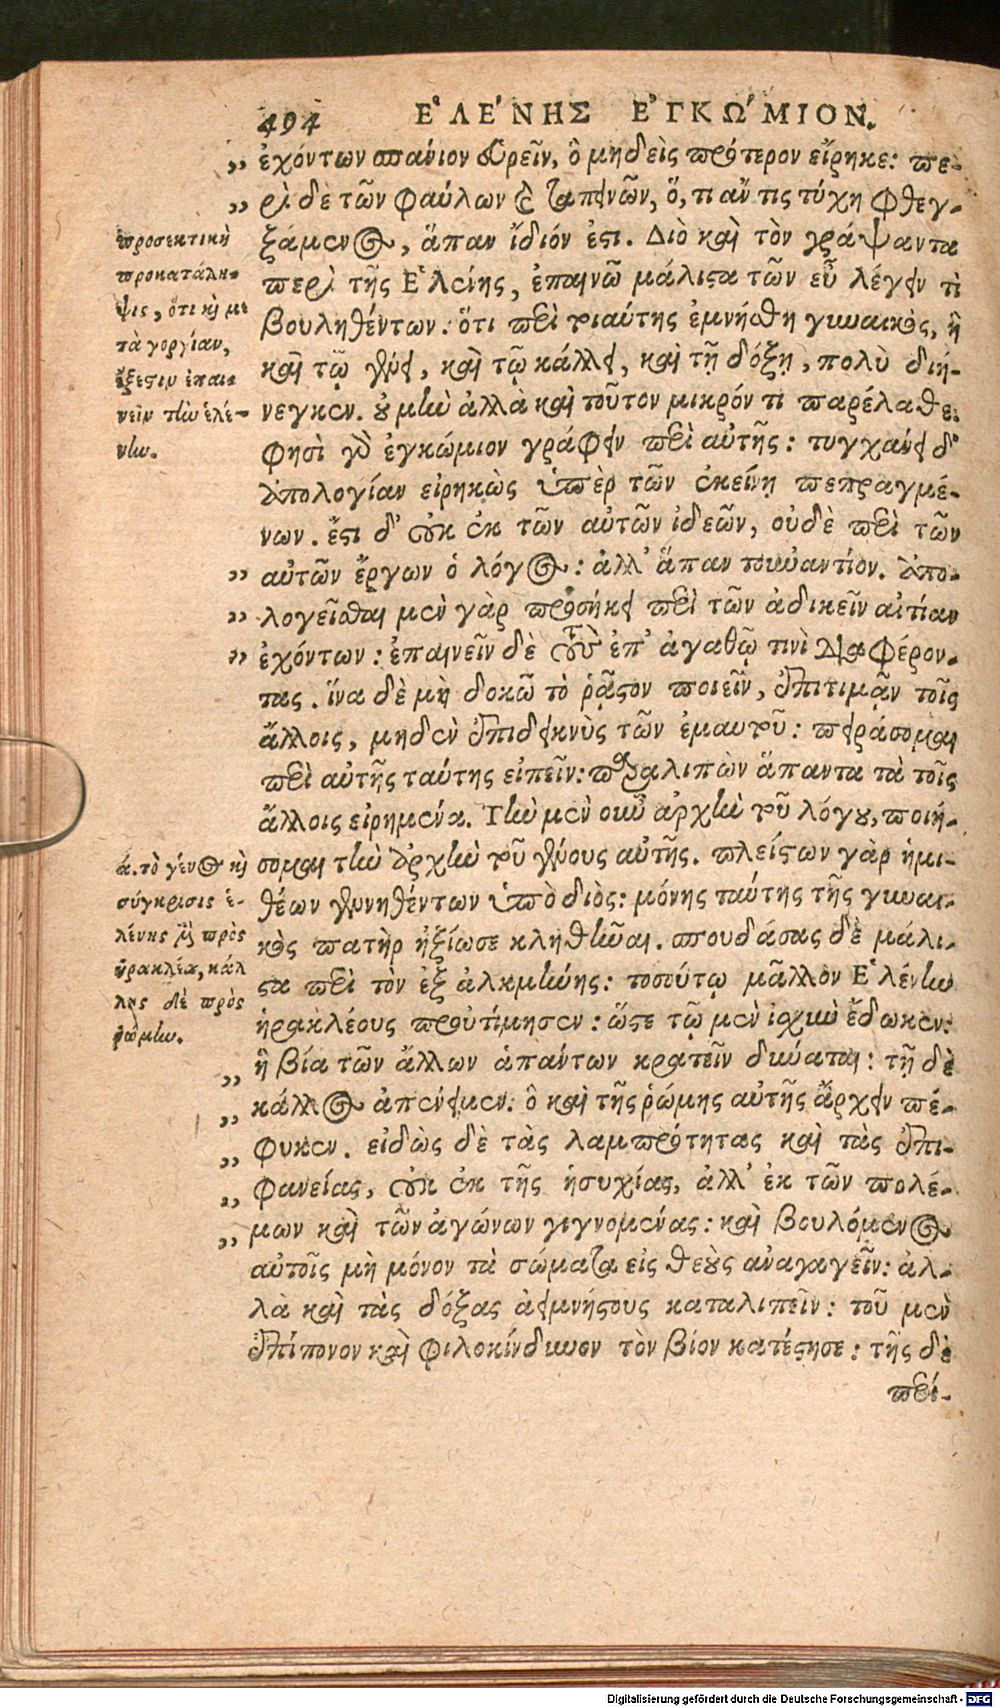 494 ἙΛΈΝΗΣ ἘΓΚΏΜΙΟΝ.
„ ἐχόντων σπάνιον εὑρεῖν, ὃ μηδεὶς πρότερον εἴρηκε: πε-
„ ρὶ δὲ τῶν φαύλων καὶ ταπεινῶν, ὅ, τι ἄν τις τύχῃ φθεγ-
ξάμενος, ἅπαν ἴδιόν ἐστι. Διὸ καὶ τὸν γράψαντα
περὶ τῆς Ἑλένης, ἐπαινῶ μάλιστα τῶν εὖ λέγειν τὶ
βουληθέντων: ὅτι περὶ τοιαύτης ἐμνήσθη γυναικὸς, ἣ
καὶ τῷ γένει, καὶ τῷ κάλλει, καὶ τῇ δόξῃ, πολὺ διή-
νεγκεν. οὐ μὴν ἀλλὰ καὶ τοῦτον μικρόν τι παρέλαθε.
φησὶ γὰρ ἐγκώμιον γράφειν περὶ αὐτῆς: τυγχάνει δ'
ἀπολογίαν εἰρηκὼς ὑπὲρ τῶν ἐκείνῃ πεπραγμέ-
νων. ἔστι δ' οὐκ ἐκ τῶν αὐτῶν ἰδεῶν, οὐδὲ περὶ τῶν
„ αὐτῶν ἔργων ὁ λόγος: ἀλλ' ἅπαν τοὐναντίον. ἀπο-
„ λογεῖσθαι μὲν γὰρ προσήκει περὶ τῶν ἀδικεῖν αἰτίαν
„ ἐχόντων: ἐπαινεῖν δὲ τοὺς ἐπ' ἀγαθῷ τινὶ διαφέρον-
τας. ἵνα δὲ μὴ δοκῶ τὸ ῥᾷστον ποιεῖν, ἐπιτιμᾷν τοῖς
ἄλλοις, μηδὲν ἐπιδεικνὺς τῶν ἐμαυτοῦ: πειράσομαι
περὶ αὐτῆς ταύτης εἰπεῖν: παραλιπὼν ἅπαντα τὰ τοῖς
ἄλλοις εἰρημένα. Τὴν μὲν οὖν ἀρχὴν τοῦ λόγου, ποιή-
σομαι τὴν ἀρχὴν τοῦ γένους αὐτῆς. πλείστων γὰρ ἡμι-
θέων γεννηθέντων ὑπὸ διὸς: μόνης ταύτης τῆς γυναι-
κὸς πατὴρ ἠξίωσε κληθῆναι. σπουδάσας δὲ μάλι-
στα περὶ τὸν ἐξ ἀλκμήνης: τοσούτῳ μᾶλλον Ἑλένην
ἡρακλέους προὐτίμησεν: ὥστε τῷ μὲν ἰσχὺν ἔδωκεν:
„ ἣ βία τῶν ἄλλων ἁπάντων κρατεῖν δύναται: τῇ δὲ
„ κάλλος ἀπένειμεν: ὃ καὶ τῆς ῥώμης αὐτῆς ἄρχειν πέ-
„ φυκεν. εἰδὼς δὲ τὰς λαμπρότητας καὶ τὰς ἐπι-
„ φανείας, οὐκ ἐκ τῆς ἡσυχίας, ἀλλ' ἐκ τῶν πολέ-
„ μων καὶ τῶν ἀγώνων γιγνομένας: καὶ βουλόμενος
αὐτοῖς μὴ μόνον τὰ σώματα εἰς θεοὺς ἀναγαγεῖν: ἀλ-
λὰ καὶ τὰς δόξας ἀειμνήστους καταλιπεῖν: τοῦ μὲν
ἐπίπονον καὶ φιλοκίνδυνον τὸν βίον κατέστησε: τῆς δὲ
περί-
προσεκτικὴ
προκατάλη-
ψις, ὅτι καὶ με
τὰ γοργίαν,
ἔξεστιν ἐπαι-
νεῖν τὴν ἑλέ-
νην.
α. τὸ γένος καὶ
σύγκρισις ἑ-
λένης μὲν πρὸς
ἡρακλέα, κάλ
λης δὲ πρὸς
ῥώμην.
Digitalisierung gefördert durch die Deutsche Forschungsgemeinschaft - DFG